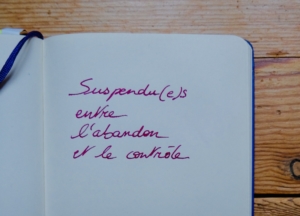 Suspendu(e)s
entre
l'abandon
et le contrôle